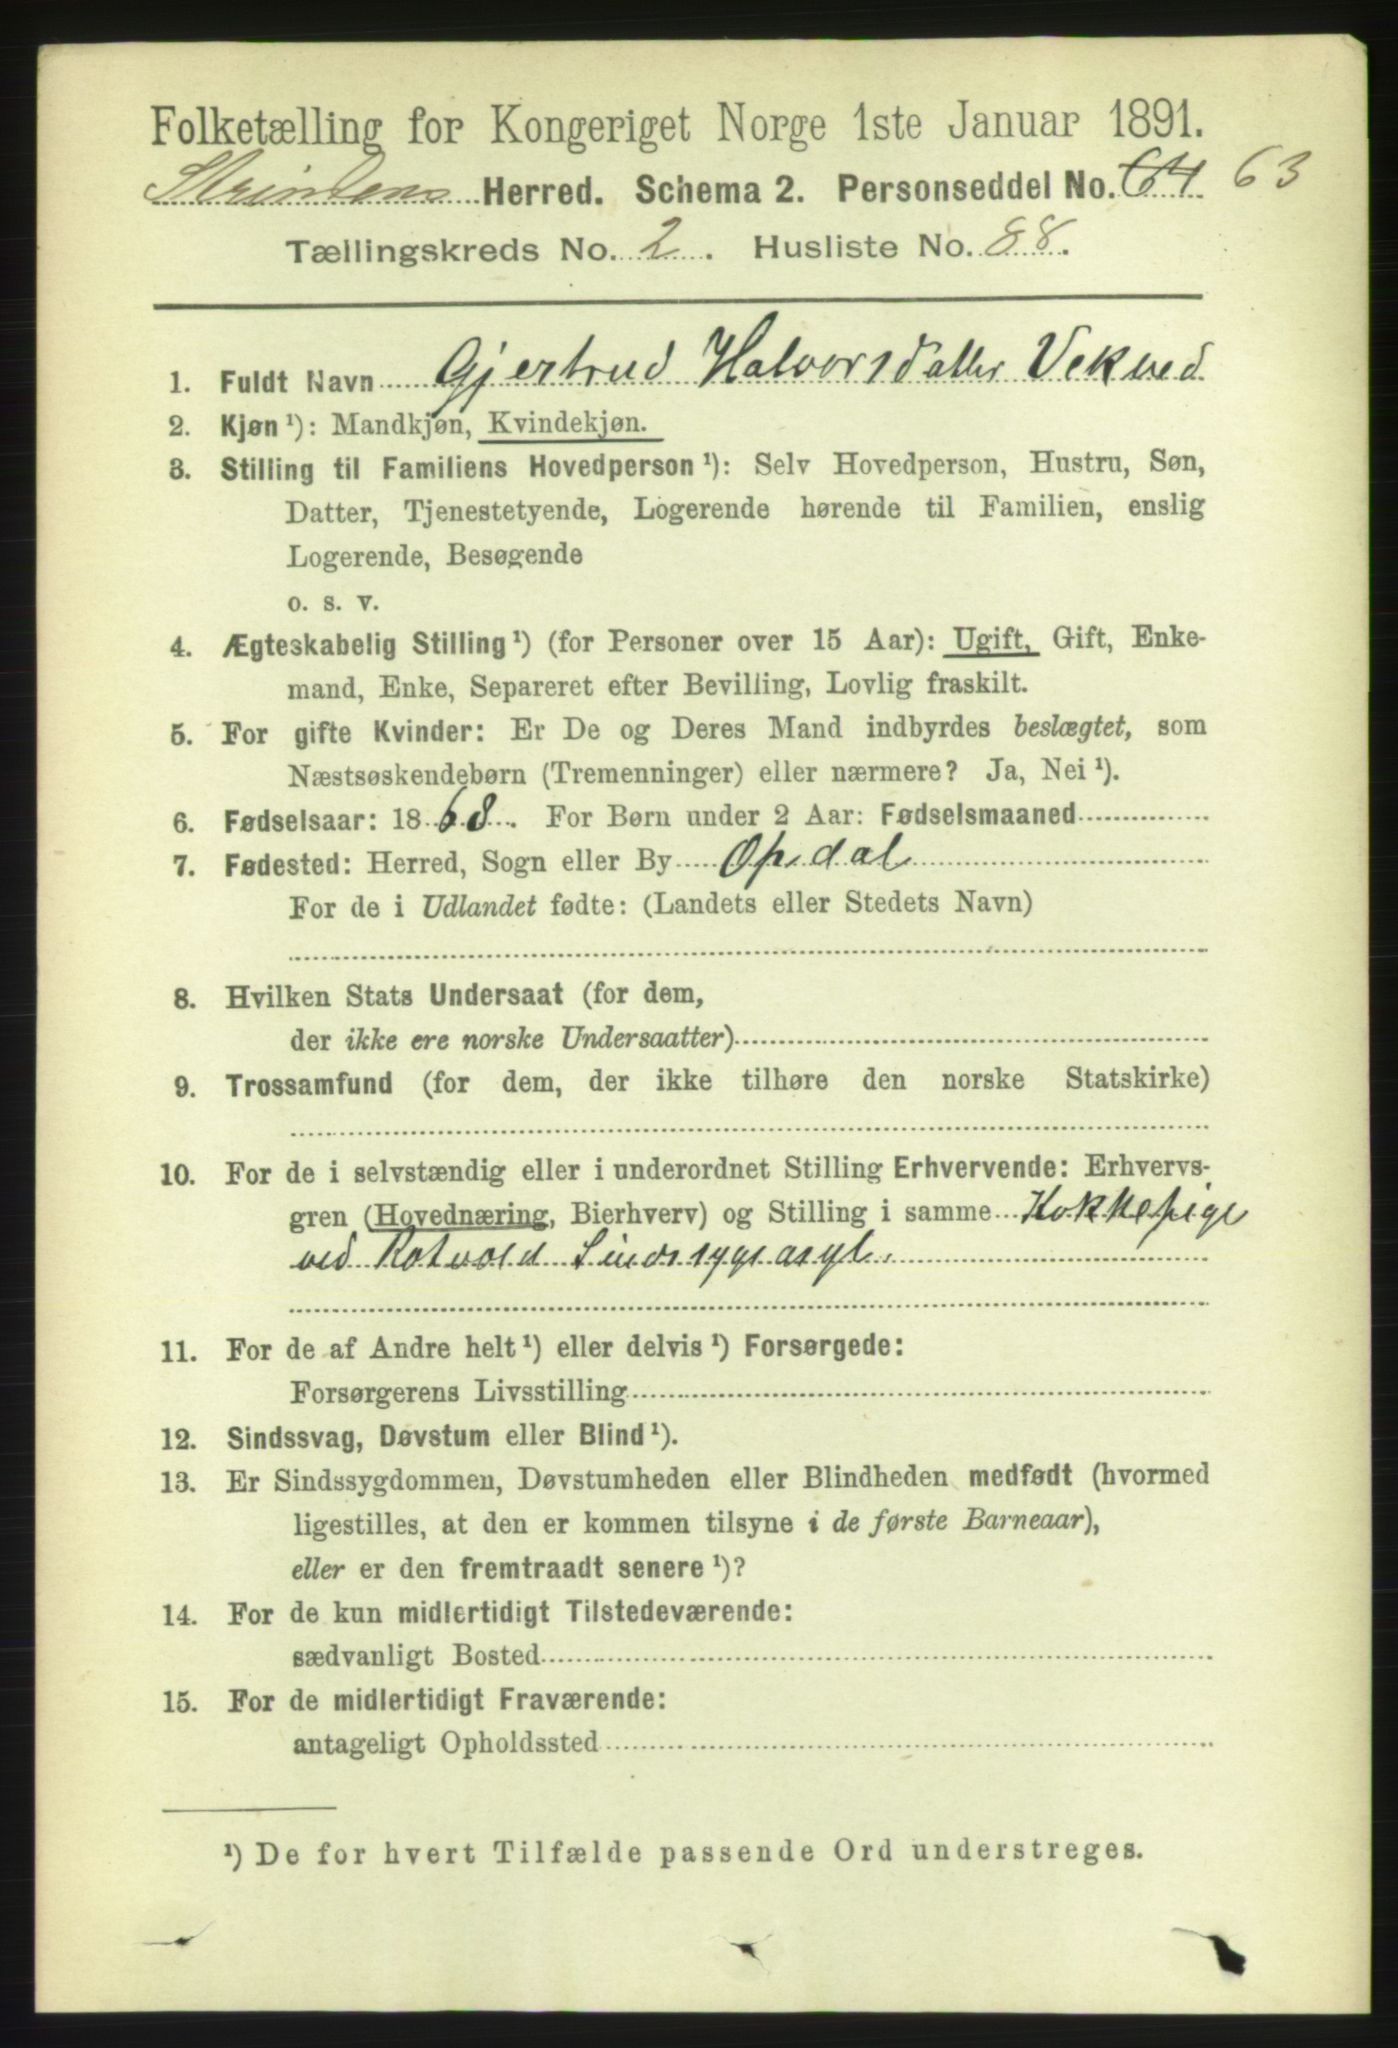 Folketælling for Kongeriget Norge 1ste Januar 1891.
Strindens Herred. Schema 2. Personseddel No. 64 63
Tællingskreds No. 2. Husliste No. 88.
1. Fuldt Navn Gjertrud Halvorsdatter Vekved
2. Kjøn ¹): Mandkjøn, Kvindekjøn.
3. Stilling til Familiens Hovedperson ¹): Selv Hovedperson, Hustru, Søn,
Datter, Tjenestetyende, Logerende hørende til Familien, enslig
Logerende, Besøgende
o. s. v.
4. Ægteskabelig Stilling ¹) (for Personer over 15 Aar): Ugift, Gift, Enke-
mand, Enke, Separeret efter Bevilling, Lovlig fraskilt.
5. For gifte Kvinder: Er De og Deres Mand indbyrdes beslægtet, som
Næstsøskendebørn (Tremenninger) eller nærmere? Ja, Nei ¹).
6. Fødselsaar: 1868. For Børn under 2 Aar: Fødselsmaaned
7. Fødested: Herred, Sogn eller By Opdal
For de i Udlandet fødte: (Landets eller Stedets Navn)
8. Hvilken Stats Undersaat (for dem,
der ikke ere norske Undersaatter)
9. Trossamfund (for dem, der ikke tilhøre den norske Statskirke)
10. For de i selvstændig eller i underordnet Stilling Erhvervende: Erhvervs-
gren (Hovednæring, Bierhverv) og Stilling i samme Kokkepige
ved Rotvold Sindssygeasyl.
11. For de af Andre helt ¹) eller delvis ¹) Forsørgede:
Forsørgerens Livsstilling
12. Sindssvag, Døvstum eller Blind ¹).
13. Er Sindssygdommen, Døvstumheden eller Blindheden medfødt (hvormed
ligestilles, at den er kommen tilsyne i de første Barneaar),
eller er den fremtraadt senere ¹)?
14. For de kun midlertidigt Tilstedeværende:
sædvanligt Bosted
15. For de midlertidigt Fraværende:
antageligt Opholdssted
¹) De for hvert Tilfælde passende Ord understreges.